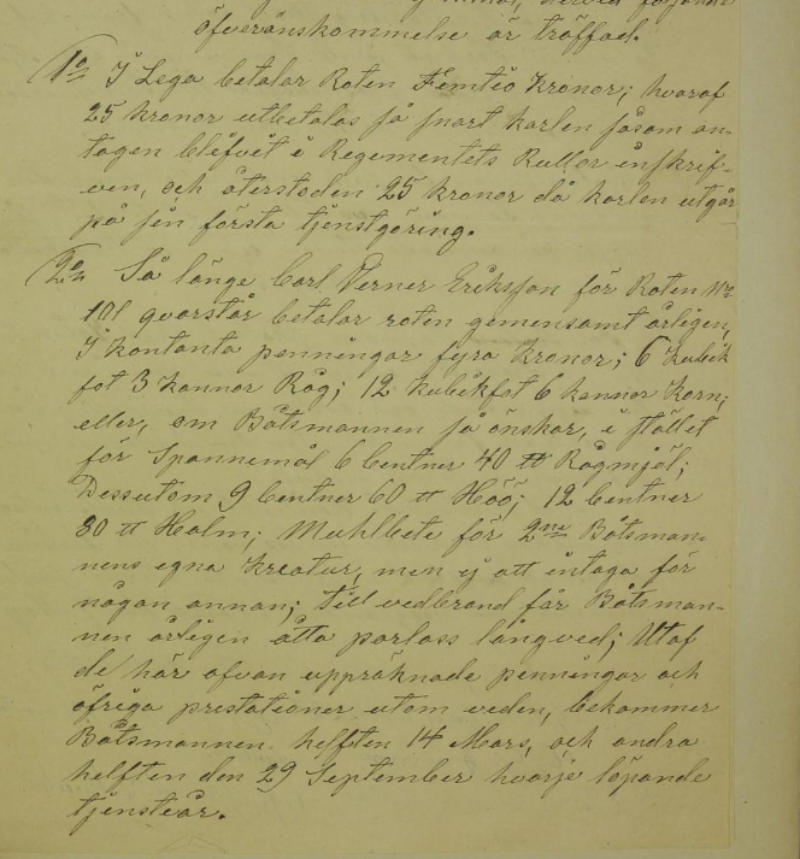 följande
öfverënskommelse är träffad.
1o I Lega betalar Roten Femtio Kronor; hvaraf
25 kronor utbetalas så snart karlen såsom an-
tagen blifvit i Regementets Rullor inskrif-
ven, och återstoden 25 kronor då karlen utgår
på sin första tjenstgöring.
2o Så länge Carl Verner Eriksson för Roten No
101 qvarstår betalar roten gemensamt årligen,
I kontanta penningar fyra Kronor; 6 kubik
fot 3 kannor Råg; 12 kubikfot 6 kannor Korn;
eller, om Båtsmannen så önskar, i stället
för Spannemål 6 Centner 40 tt Rågmjöl;
Dessutom 9 Centner 60 tt Höö; 12 Centner
80 tt Halm; Muhlbete för 2ne Båtsman-
nens egna kreatur, men ej att intaga för
någon annan; till vedbrand får Båtsman-
nen årligen åtta parlass långved; Utaf
de här ofvan uppräknade penningar och
öfriga prestationer utom veden, bekommer
Båtsmannen helften 14 Mars, och andra
helften den 29 September hvarje löpande
tjensteår.